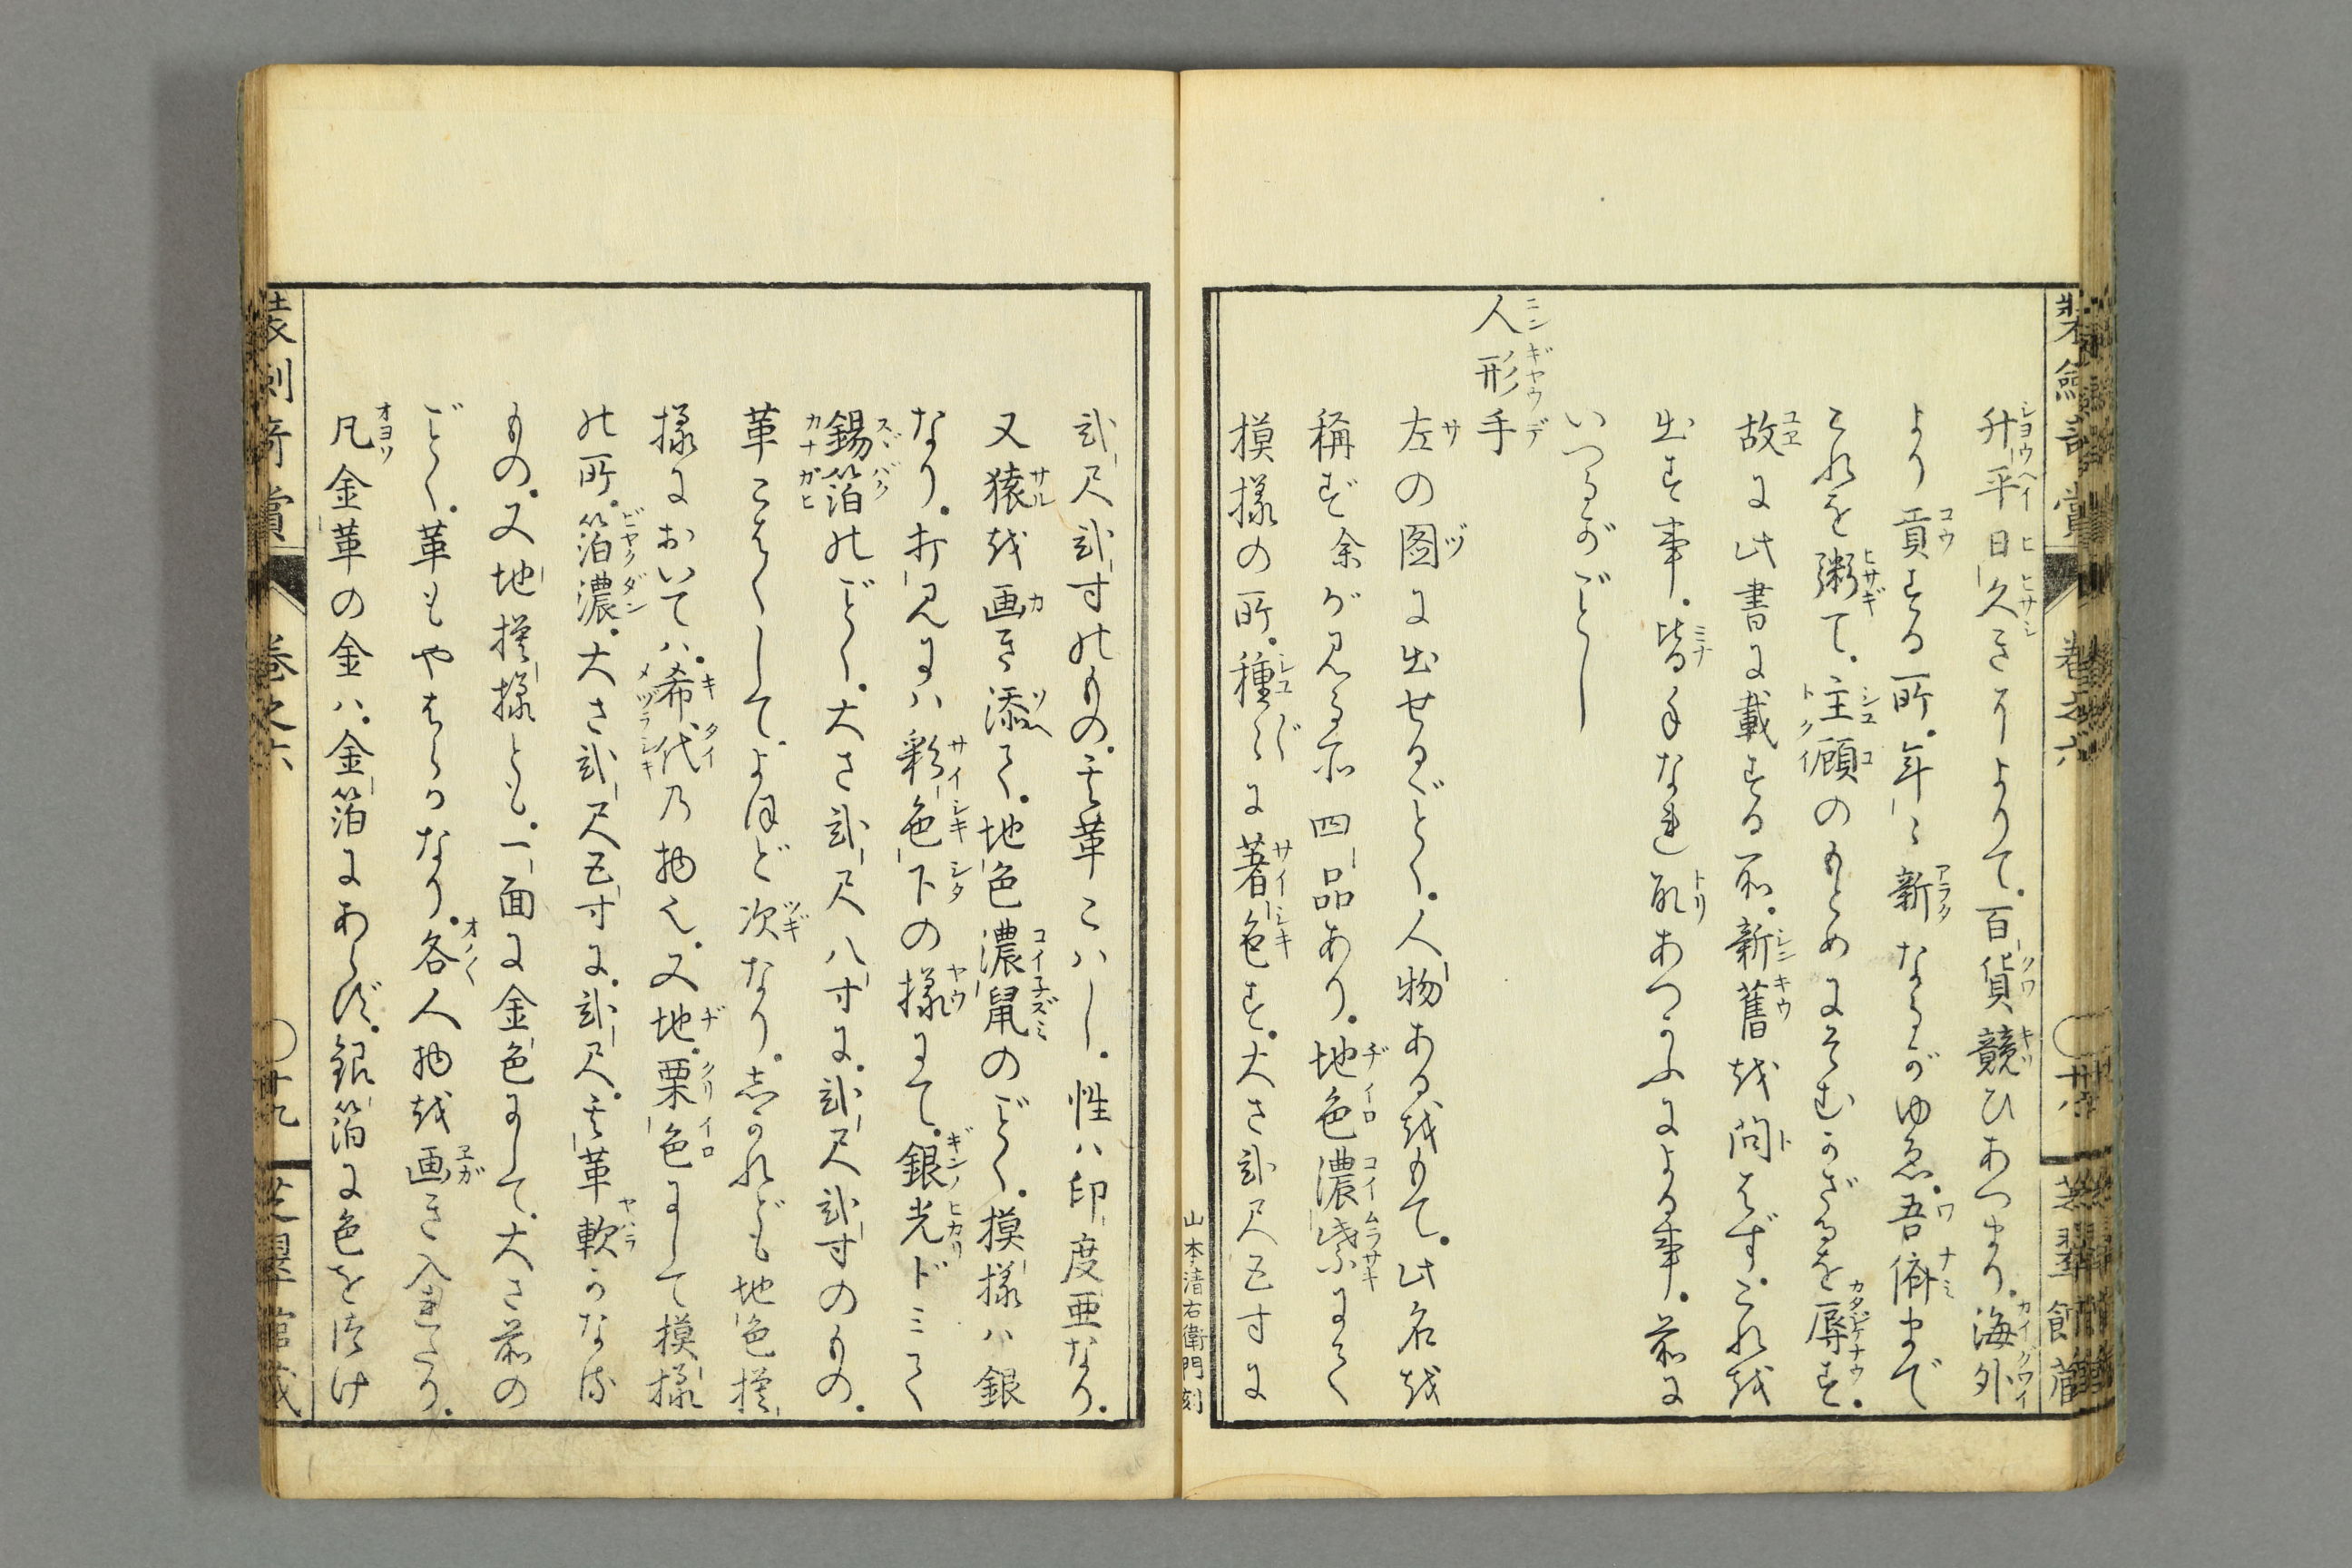 装劍奇賞
巻之六
〇廿八
芝翠館蔵
升平日久きによりて。百貨競ひあつまり。海外
より貢する所。年々新なるがゆゑ。吾儕まで
これを粥て。主顧のもとめにそむかざるを辱す。
故に此書に載する所。新舊を問はず。これを
出す事。皆手なれ取あつかふによる事。前に
いへるがごとし
人形手
左の図に出せるごとく。人物あるをもて。此名を
稱ず余が見る所四品あり。地色濃紫にて
摸様の所。種々に著色す。大さ弐尺五寸に
山本清右衛門刻
弐尺弐寸のもの。其革こハし。性ハ印度亜なり。
又猿を画き添て。地色濃鼠のごとく。摸様ハ銀
なり。打見にハ彩色下の様にて。銀光ドミて
錫箔のごとく。大さ弐尺八寸に。弐尺弐寸のもの。
革こはくして。よほど次なり。しかれども地色摸
様においてハ。希代の物也。又地。栗色にして摸様
の所。箔濃。大さ弐尺五寸に。弐尺。其革軟かなる
もの。又地摸様とも。一面に金色にして。大さ前の
ごとく。革もやはらかなり。各人物を画き入れたり。
凡金革の金ハ。金箔にあらず。銀箔に色をつけ
装劍奇賞
巻之六
〇廿九
芝翠館蔵